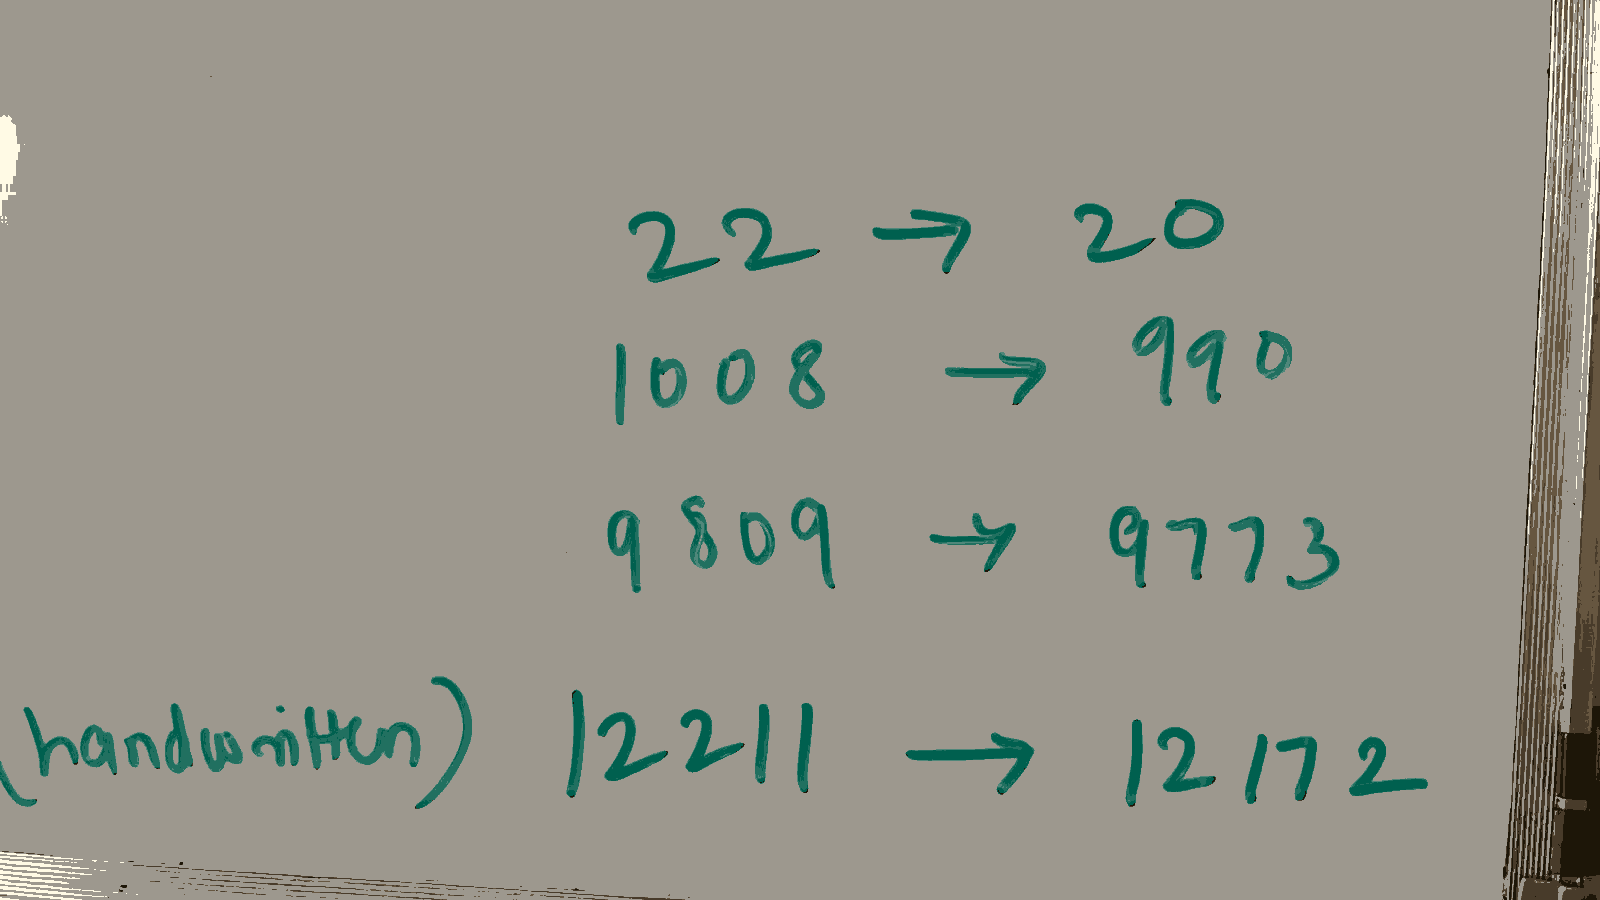 22 → 20
1008 → 990
9809 → 9773
(handwritten) 12211 → 12172